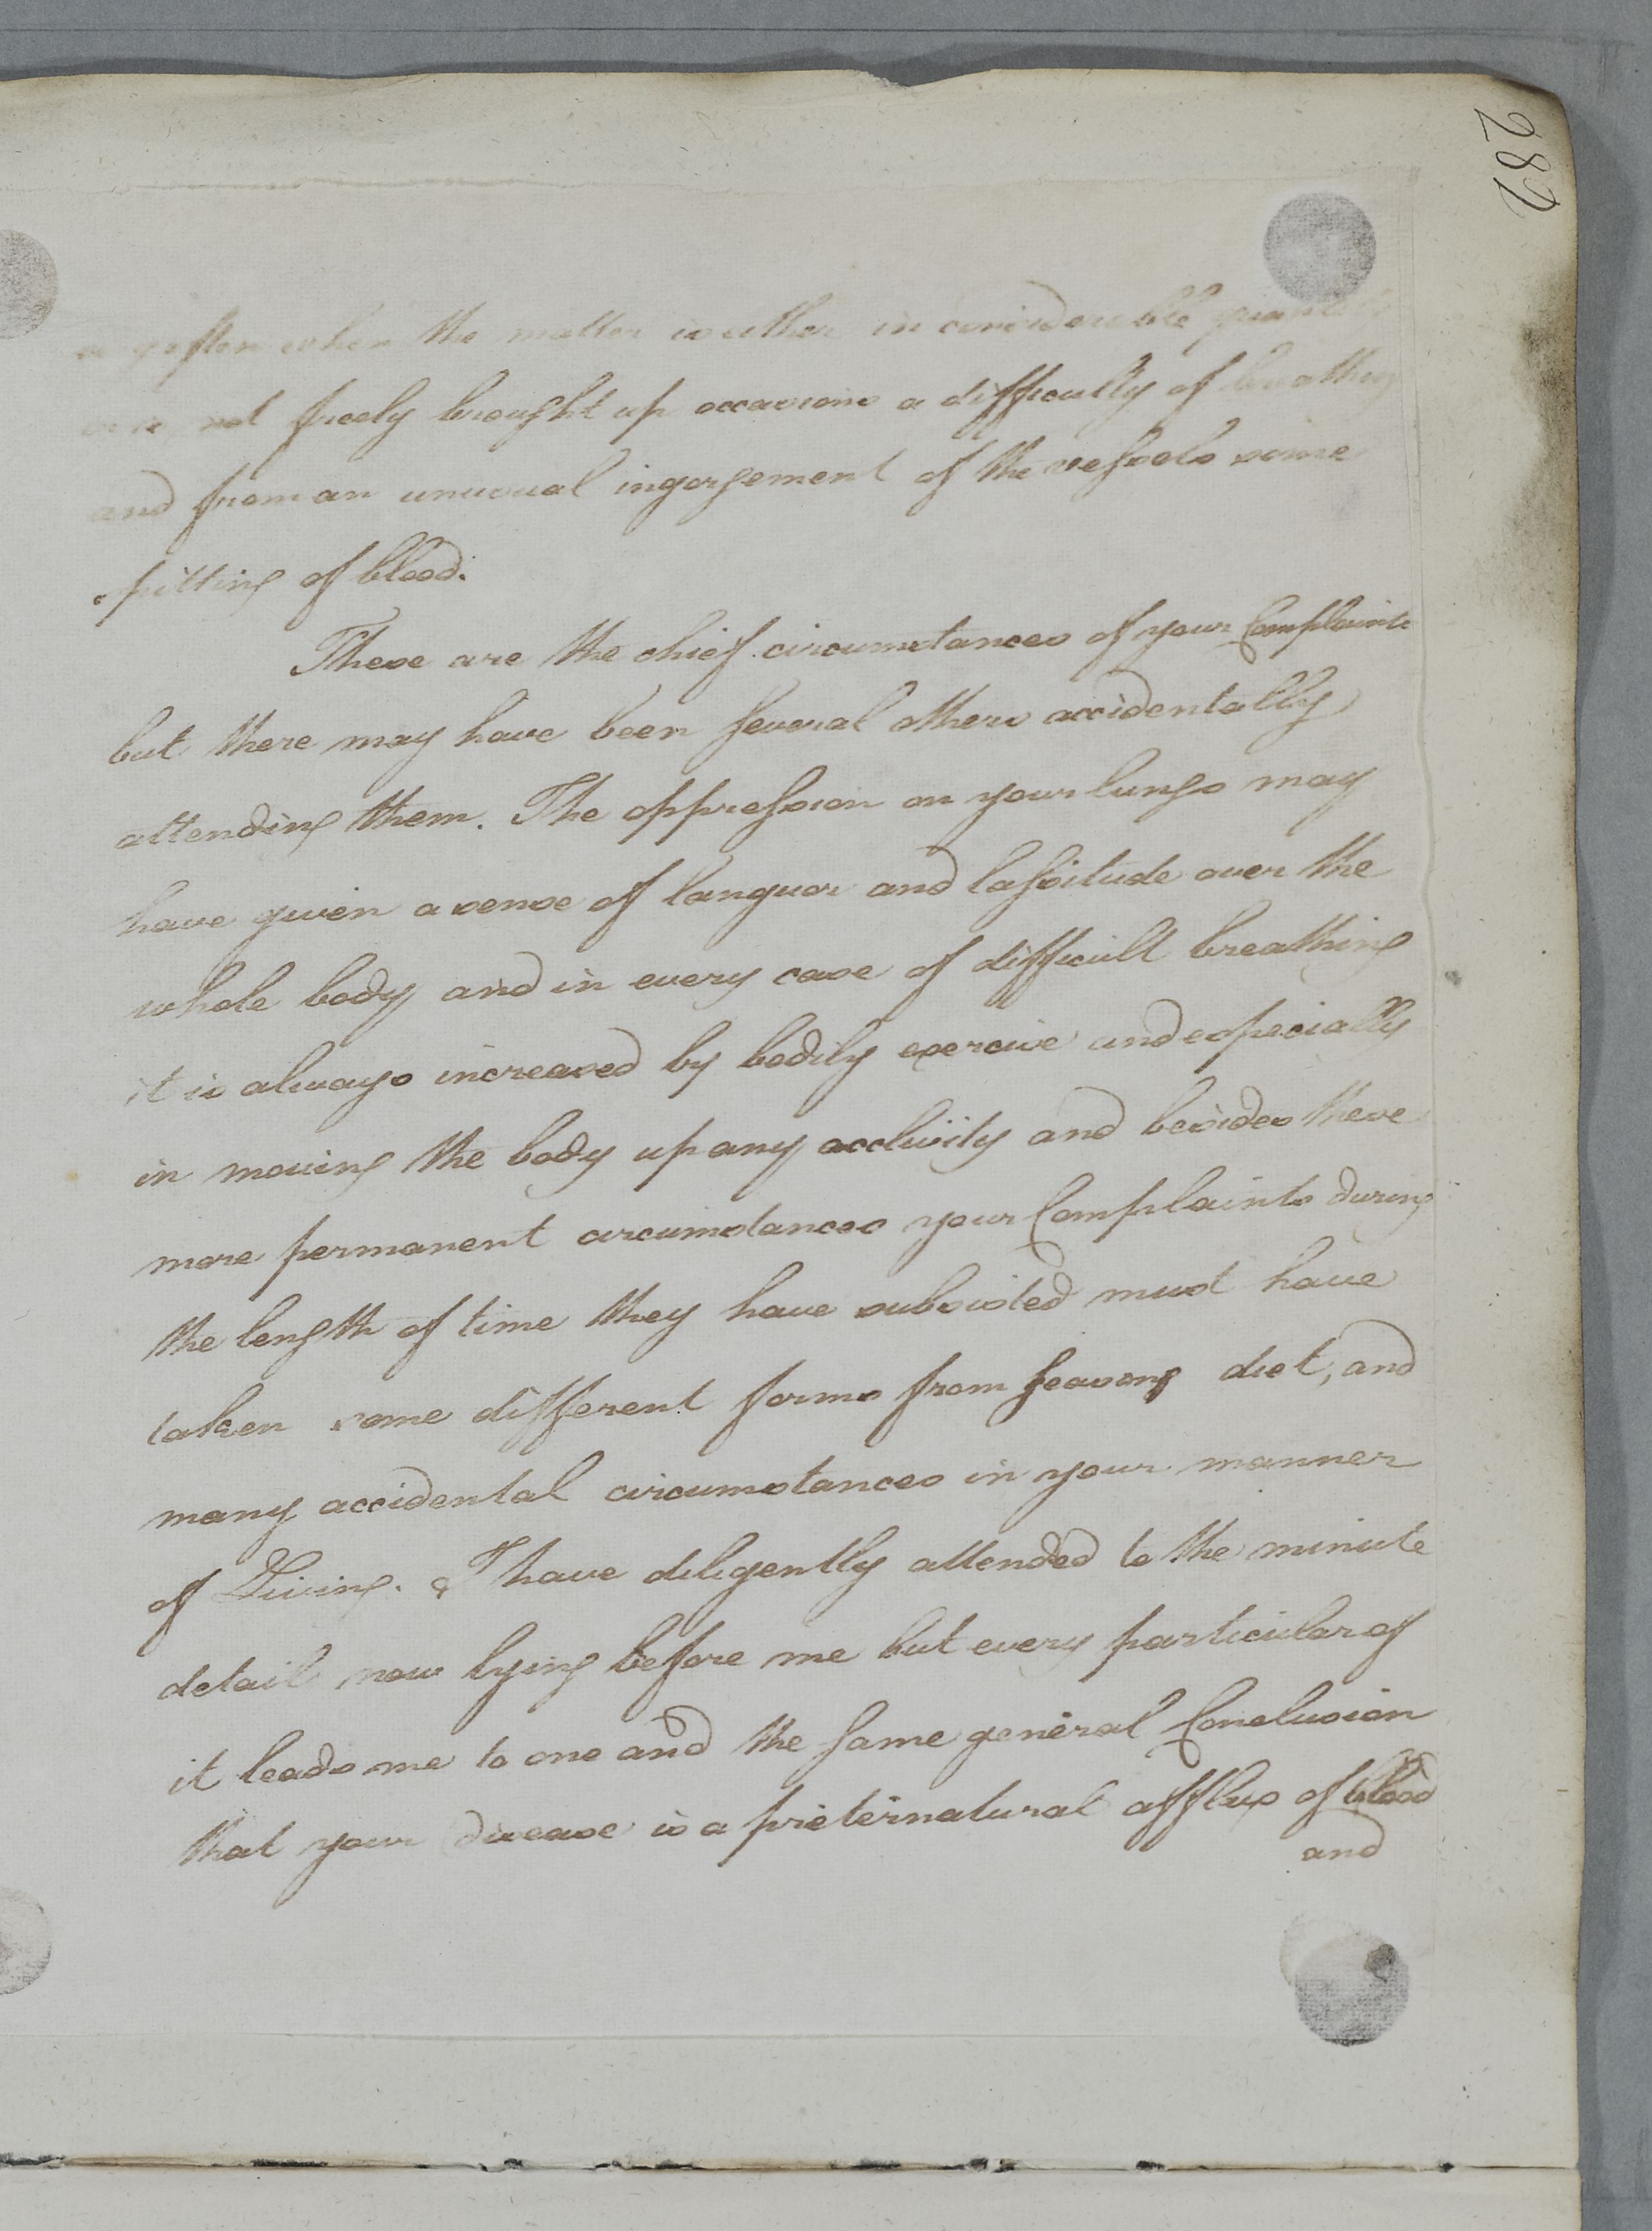 282
often when the matter is either in considerable quantity
is not freely brought up occasions a difficulty of breathing
and from an unusual ingorgement of the vessels some
spitting of blood.
These are the chief circumstances of your Complaints
but there may have been several others accidentally
attending them. The oppression on your lungs may
have given a sense of languor and lassitude over the
whole body and in every case of difficult breathing
it is always increased by bodily exercise and especially
in moving the body up any acclivity and besides these
more permanent circumstances your Complaints during
the length of time they have subsisted must have
taken some different forms from seasons diet, and
many accidental circumstances in your manner
of Living. I have diligently attended to the minute
detail now lying before me but every particular of
it leads me to one and the same general Conclusion
that your disease is a preternatural afflux of blood
and